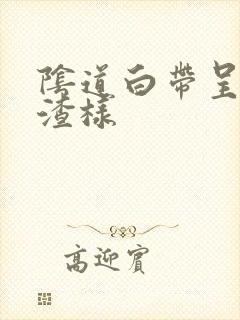 陰道白帶呈
渣樣
高迎賓